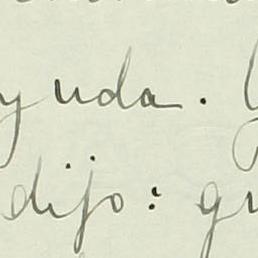 yuda.
dijo: